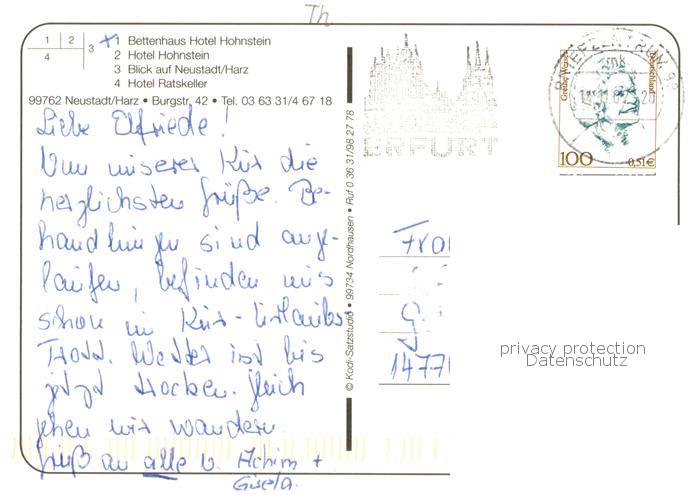 Th
1 2 3 4
1 Bettenhaus Hotel Hohnstein
2 Hotel Hohnstein
3 Blick auf Neustadt/Harz
4 Hotel Ratskeller
99762 Neustadt/Harz • Burgstr. 42 • Tel. 03 63 31/4 67 18
Liebe Elfriede!
Von unserer Kur die
herzlichsten Grüße. Be-
handlungen sind ange-
laufen, befinden uns
schon im Kur-Urlaubs-
Trott. Wetter ist bis
jetzt trocken. Gleich
gehen wir wandern.
Grüß an alle v. Achim +
Gisela.
© Kodi-Satzstudio • 99734 Nordhausen • Ruf 0 36 31/98 27 78
ERFURT
BRIEFZENTRUM 99
Grethe Weiser
Deutschland
100
0,51€
Frau
1477
privacy protection
Datenschutz